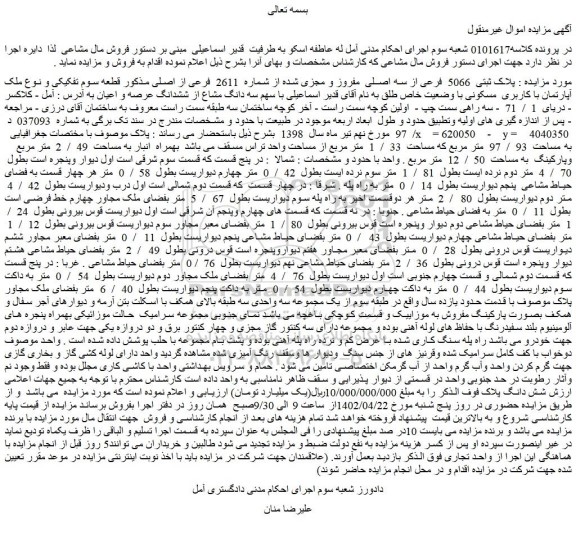 بسمه تعالی
آگهی مزایده اموال غیرمنقول
در پرونده کلاسه0101617 شعبه سوم اجرای احکام مدنی آمل له عاطفه اسکو به طرفیت قدیر اسماعیلی مبنی بر دستور فروش مال مشاعی لذا دایره اجرا
در نظر دارد جهت اجرای دستور فروش مال مشاعی که کارشناس مشخصات و بهای آنرا بشرح ذیل اعلام نموده اقدام به فروش و مزایده نماید .
مورد مزایده : پلاک ثبتی 5066 فرعی از سه اصلی مفروز و مجزی شده از شماره 2611 فرعی از اصلی مذکور قطعه سوم تفکیکی و نوع ملک
آپارتمان با کاربری مسکونی با وضعیت خاص طلق به نام آقای قدیر اسماعیلی با سهم سه دانگ مشاع از ششدانگ عرصه و اعیان به آدرس : آمل - کلاکسر
- دریای 1 / 71 - سه راهی سمت چپ - اولین کوچه سمت راست - آخر کوچه ساختمان سه طبقه سمت راست معروف به ساختمان آقای درزی - مراجعه
- پس از اندازه گیری های اولیه وتطبیق حدود و طول ابعاد اربعه موجود در طبیعت با حدود و مشخصات مندرج در سند تک برگی به شماره 037093 د
97 / مورخ نهم تیر ماه سال 1398 بشرح ذیل باستحضار می رساند : پلاک موصوف با مختصات جغرافیایی x = 620050 - y = 4040350
به مساحت 93 / 97 متر مربع که مساحت 33 / 1 متر مربع از مساحت واحد تراس مسقف می باشد بهمراه انبار به مساحت 49 / 2 متر مربع
وپارکینگ به مساحت 50 / 12 متر مربع . واحد با حدود و مشخصات : شمالا : در پنج قسمت که قسمت سوم شرقی است اول دیوار وپنجره است بطول
70 / 4 متر دوم نرده ایست بطول 81 / 1 متر سوم نرده ایست بطول 42 / 0 متر چهارم دیواریست بطول 58 / 0 متر هر چهار قسمت به فضای
حیاط مشاعی پنجم دیواریست بطول 14 / 0 متر به راه پله . شرقا : در چهار قسمت که قسمت دوم شمالی است اول درب ودیواریست بطول 42 / 4
متر دوم دیواریست بطول 80 / 2 متر هر دوقسمت اخیر به راه پله سوم دیواریست بطول 67 / 5 متر بفضای ملک مجاور چهارم خط فرضی است
بطول 11 / 0 متر به فضای حیاط مشاعی . جنوبا : در نه قسمت که قسمت های چهارم وپنجم آن شرقی است اول دیواریست قوس بیرونی بطول 24 /
1 متر بفضای حیاط مشاعی دوم دیوار وپنجره است قوس بیرونی بطول 80 / 1 متر بفضای معبر مجاور سوم دیواریست قوس بیرونی بطول 12 / 1
متر بفضای حیاط مشاعی چهارم دیواریست بطول 43 / 0 متر بفضای حیاط مشاعی پنجم دیواریست بطول 11 / 0 متر بفضای معبر مجاور ششم
دیواریست قوس درونی بطول 28 / 0 متر بفضای معبر مجاور هفتم دیوار وپنجره است قوس درونی بطول 49 / 2 متر بفضای حیاط مشاعی هشتم
دیوار وپنجره است قوس درونی بطول 36 / 2 متر بفضای حیاط مشاعی نهم دیواریست بطول 76 / 0 متر بفضای حیاط مشاعی . غربا : در پنج قسمت
که قسمت دوم شمالی و قسمت چهارم جنوبی است اول دیواریست بطول 76 / 4 متر بفضای ملک مجاور دوم دیواریست بطول 54 / 0 متر به داکت
سوم دیواریست بطول 44 / 0 متر به داکت چهارم دیواریست بطول 54 / 0 متر به داکت پنجم دیواریست بطول 40 / 6 متر بفضای ملک مجاور
پلاک موصوف با قدمت حدود یازده سال واقع در طبقه سوم از یک مجموعه سه واحدی سه طبقه بالای همکف با اسکلت بتن آرمه و دیوارهای آجر سفال و
همکف بصورت پارکینگ مفروش به موزاییک و قسمت کوچکی باغچه می باشد نمای جنوبی مجموعه سرامیک حالت موزائیکی بهمراه پنجره های
آلومینیوم بلند سفیدرنگ با حفاظ های لوله آهنی بوده و مجموعه دارای سه کنتور گاز مجزی و چهار کنتور برق و دو دروازه یکی جهت عابر و دروازه دوم
جهت خودرو می باشد راه پله سنگ کاری شده با عرض خوب و نرده راه پله آهنی بوده و سقف بام مجموعه با حلب پوشش داده شده است . واحد موصوف
دوخواب با کف کامل سرامیک شده وقرنیز های از جنس سنگ ودیوار و سقفهای رنگ آمیزی شده مشاهده گردید واحد دارای لوله کشی گاز و بخاری گازی
جهت گرم کردن واحد وآب گرم واحد از آب گرمکن اختصاصی تامین می شود . حمام و سرویل بهداشتی واحد با کاشی کاری مجلل بوده و فقط وجود نم
وآثار رطوبت در حد جنوبی واحد در قسمتی از دیوار پذیرایی و سقف ظاهر نامناسبی به واحد داده است کارشناس محترم با توجه به جمیع جهات اعلامی
ارزش شش دانگ پلاک فوق الذکر را به مبلغ 10/000/000/000ریال(یک میلیارد تومان) ارزیابی و اعلام نموده است که مورد مزایده می باشد و از
طریق مزایده حضوری در روز پنج شنبه مورخ 1402/04/22از ساعت 9 الی 9/30صبح همان روز در دفتر اجرا بفروش برساند مزایده از قیمت پایه
کارشناسی شروع و به بالاترین قیمت پیشنهاد فروخته خواهد شد تمام هزینه های بعد از انجام کارشناسی و فروش جهت انتقال مال مورد مزایده با برنده
مزایده می باشد و برنده مزایده می بایست 10در صد مبلغ پیشنهادی را فی المجلس به عنوان سپرده به قسمت اجرا تسلیم و الباقی را ظرف یکماه تودیع نماید
در غیر اینصورت سپرده او پس از کسر هزینه مزایده به نفع دولت ضبط و مزایده تجدید می شود طالبین و خریداران می توانند5 روز قبل از انجام مزایده با
هماهنگی این اجرا از واحد تجاری فوق الذکر بازدید بعمل آورند. (علاقمندان جهت شرکت در مزایده باید با اخذ نوبت اینترنتی مزایده در موعد مقرر تعیین
شده جهت شرکت در مزایده اقدام و در محل انجام مزایده حاضر شوند)
دادورز شعبه سوم اجرای احکام مدنی دادگستری آمل
علیرضا منان